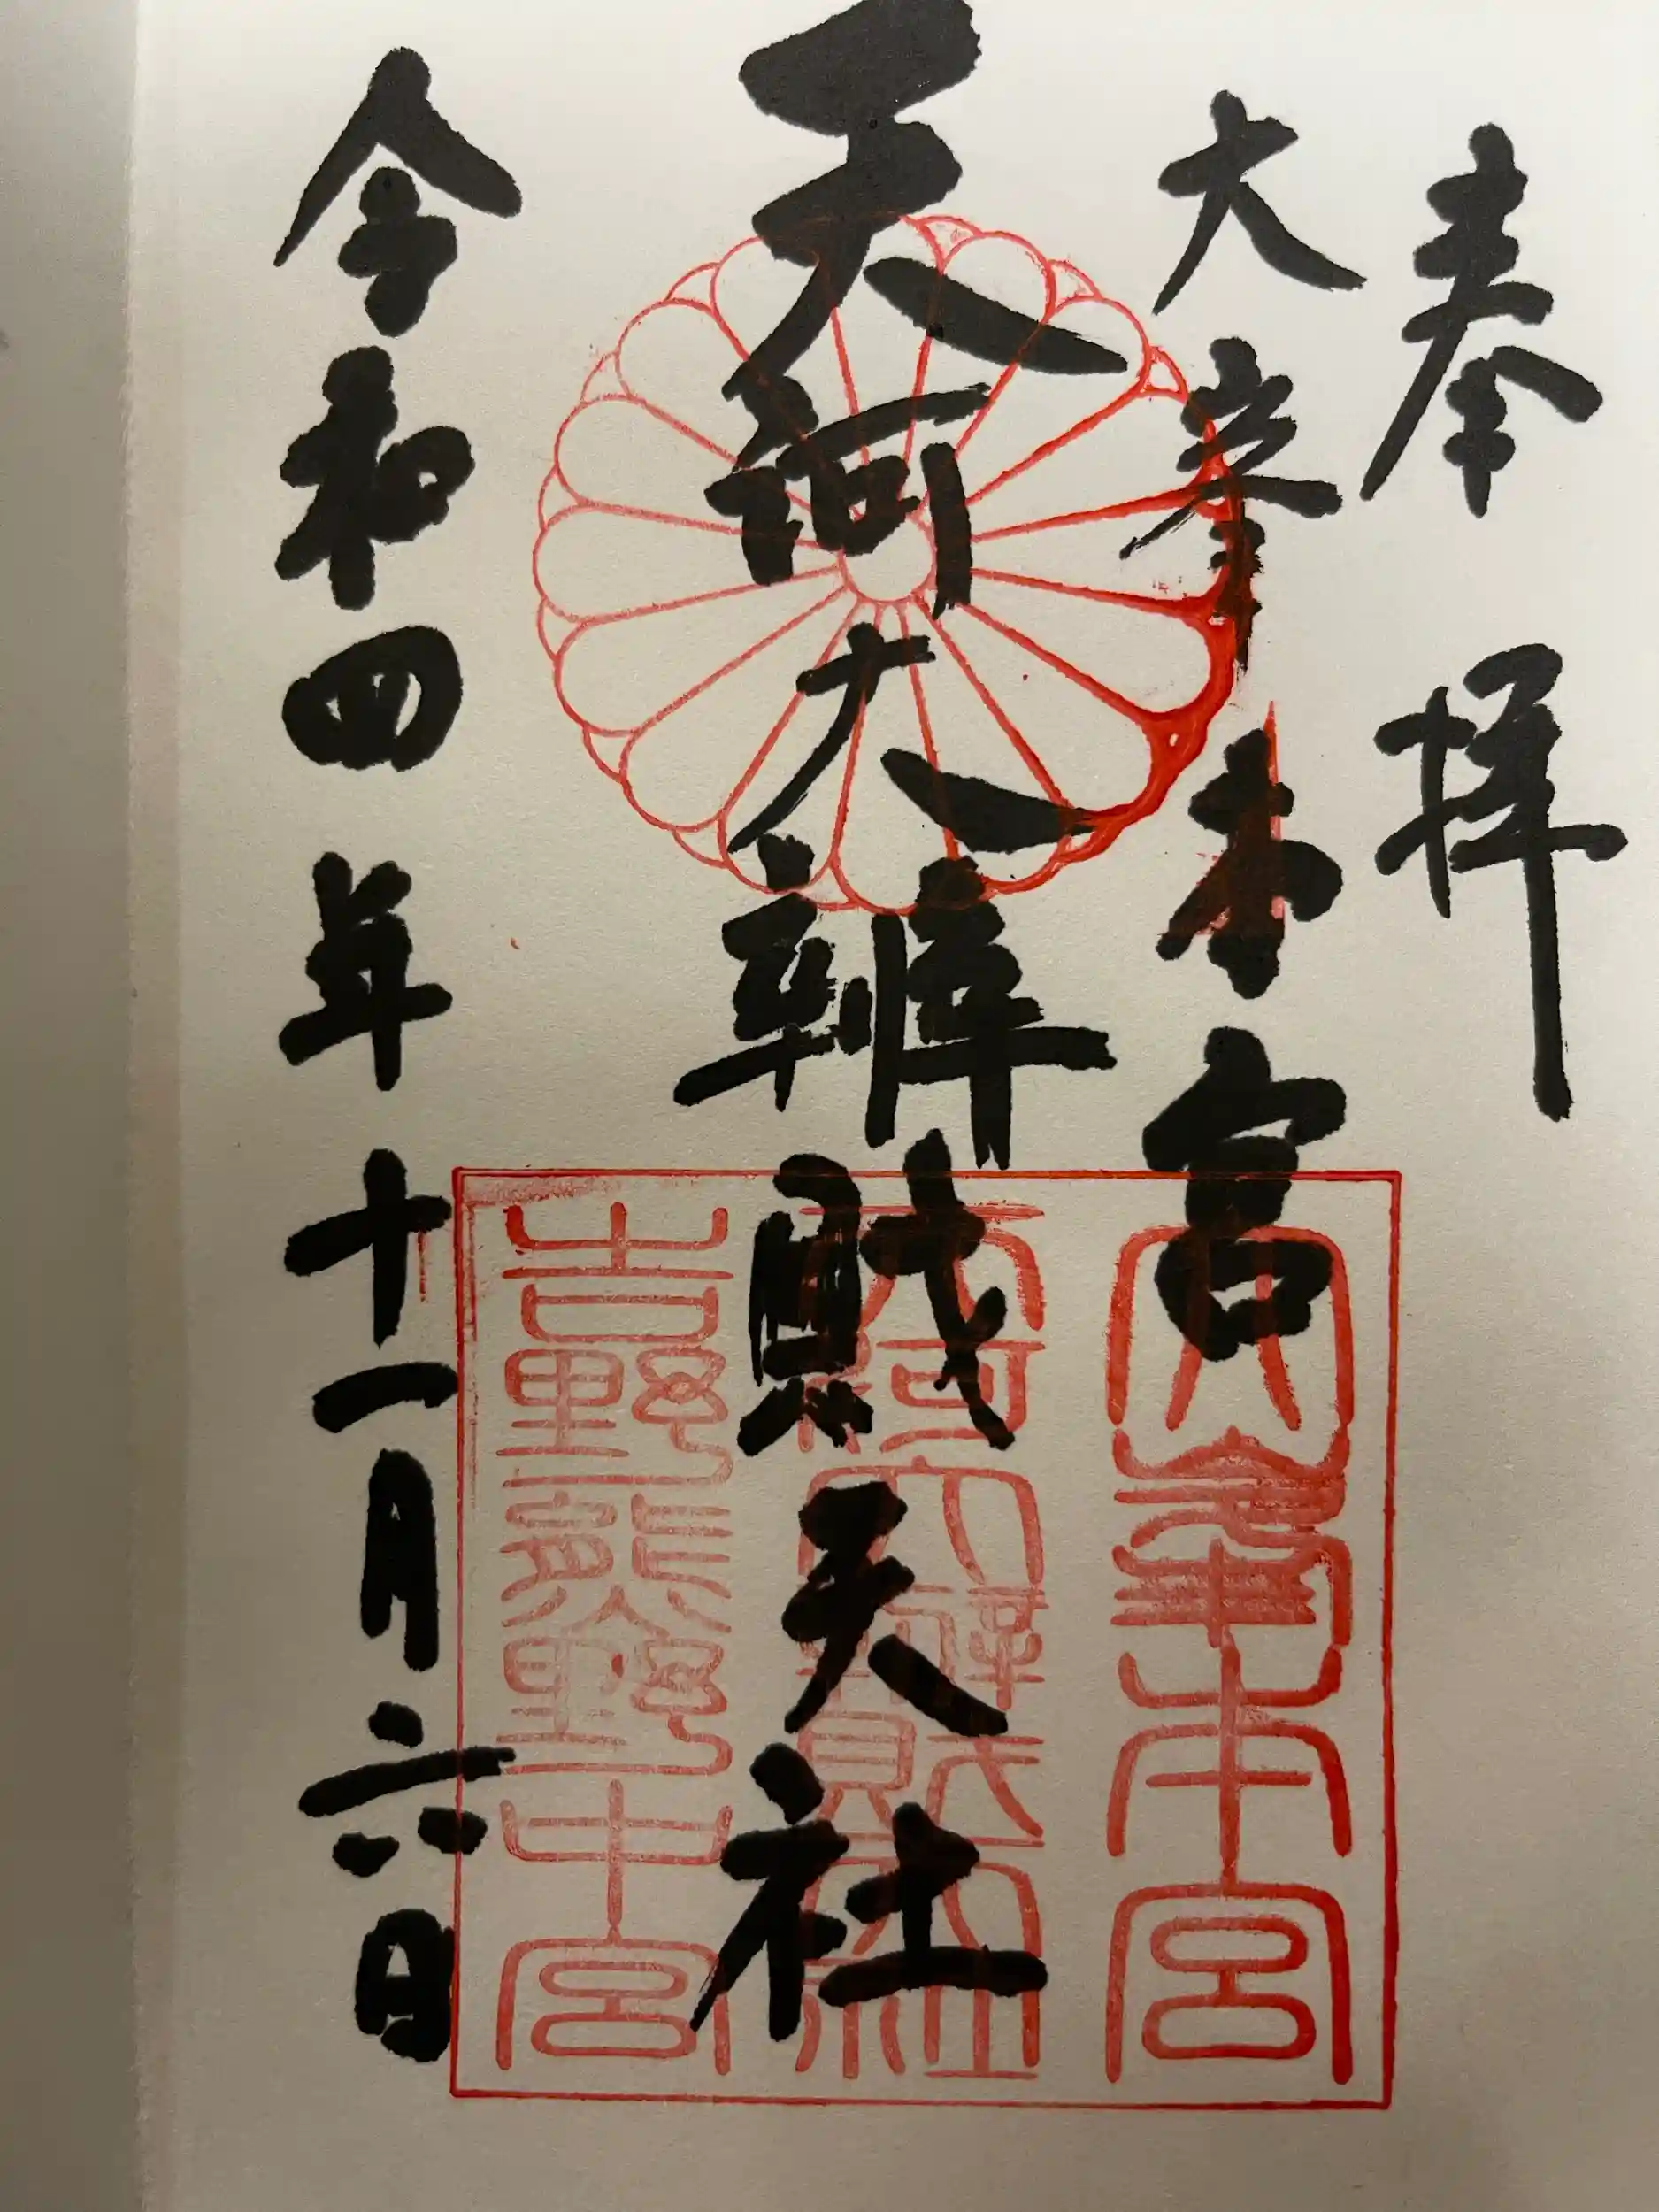 奉拝
大峯本宮
天河大辨財天社
令和四年十一月六日
大峯本宮
天河大辨財天社
吉野熊野中宮